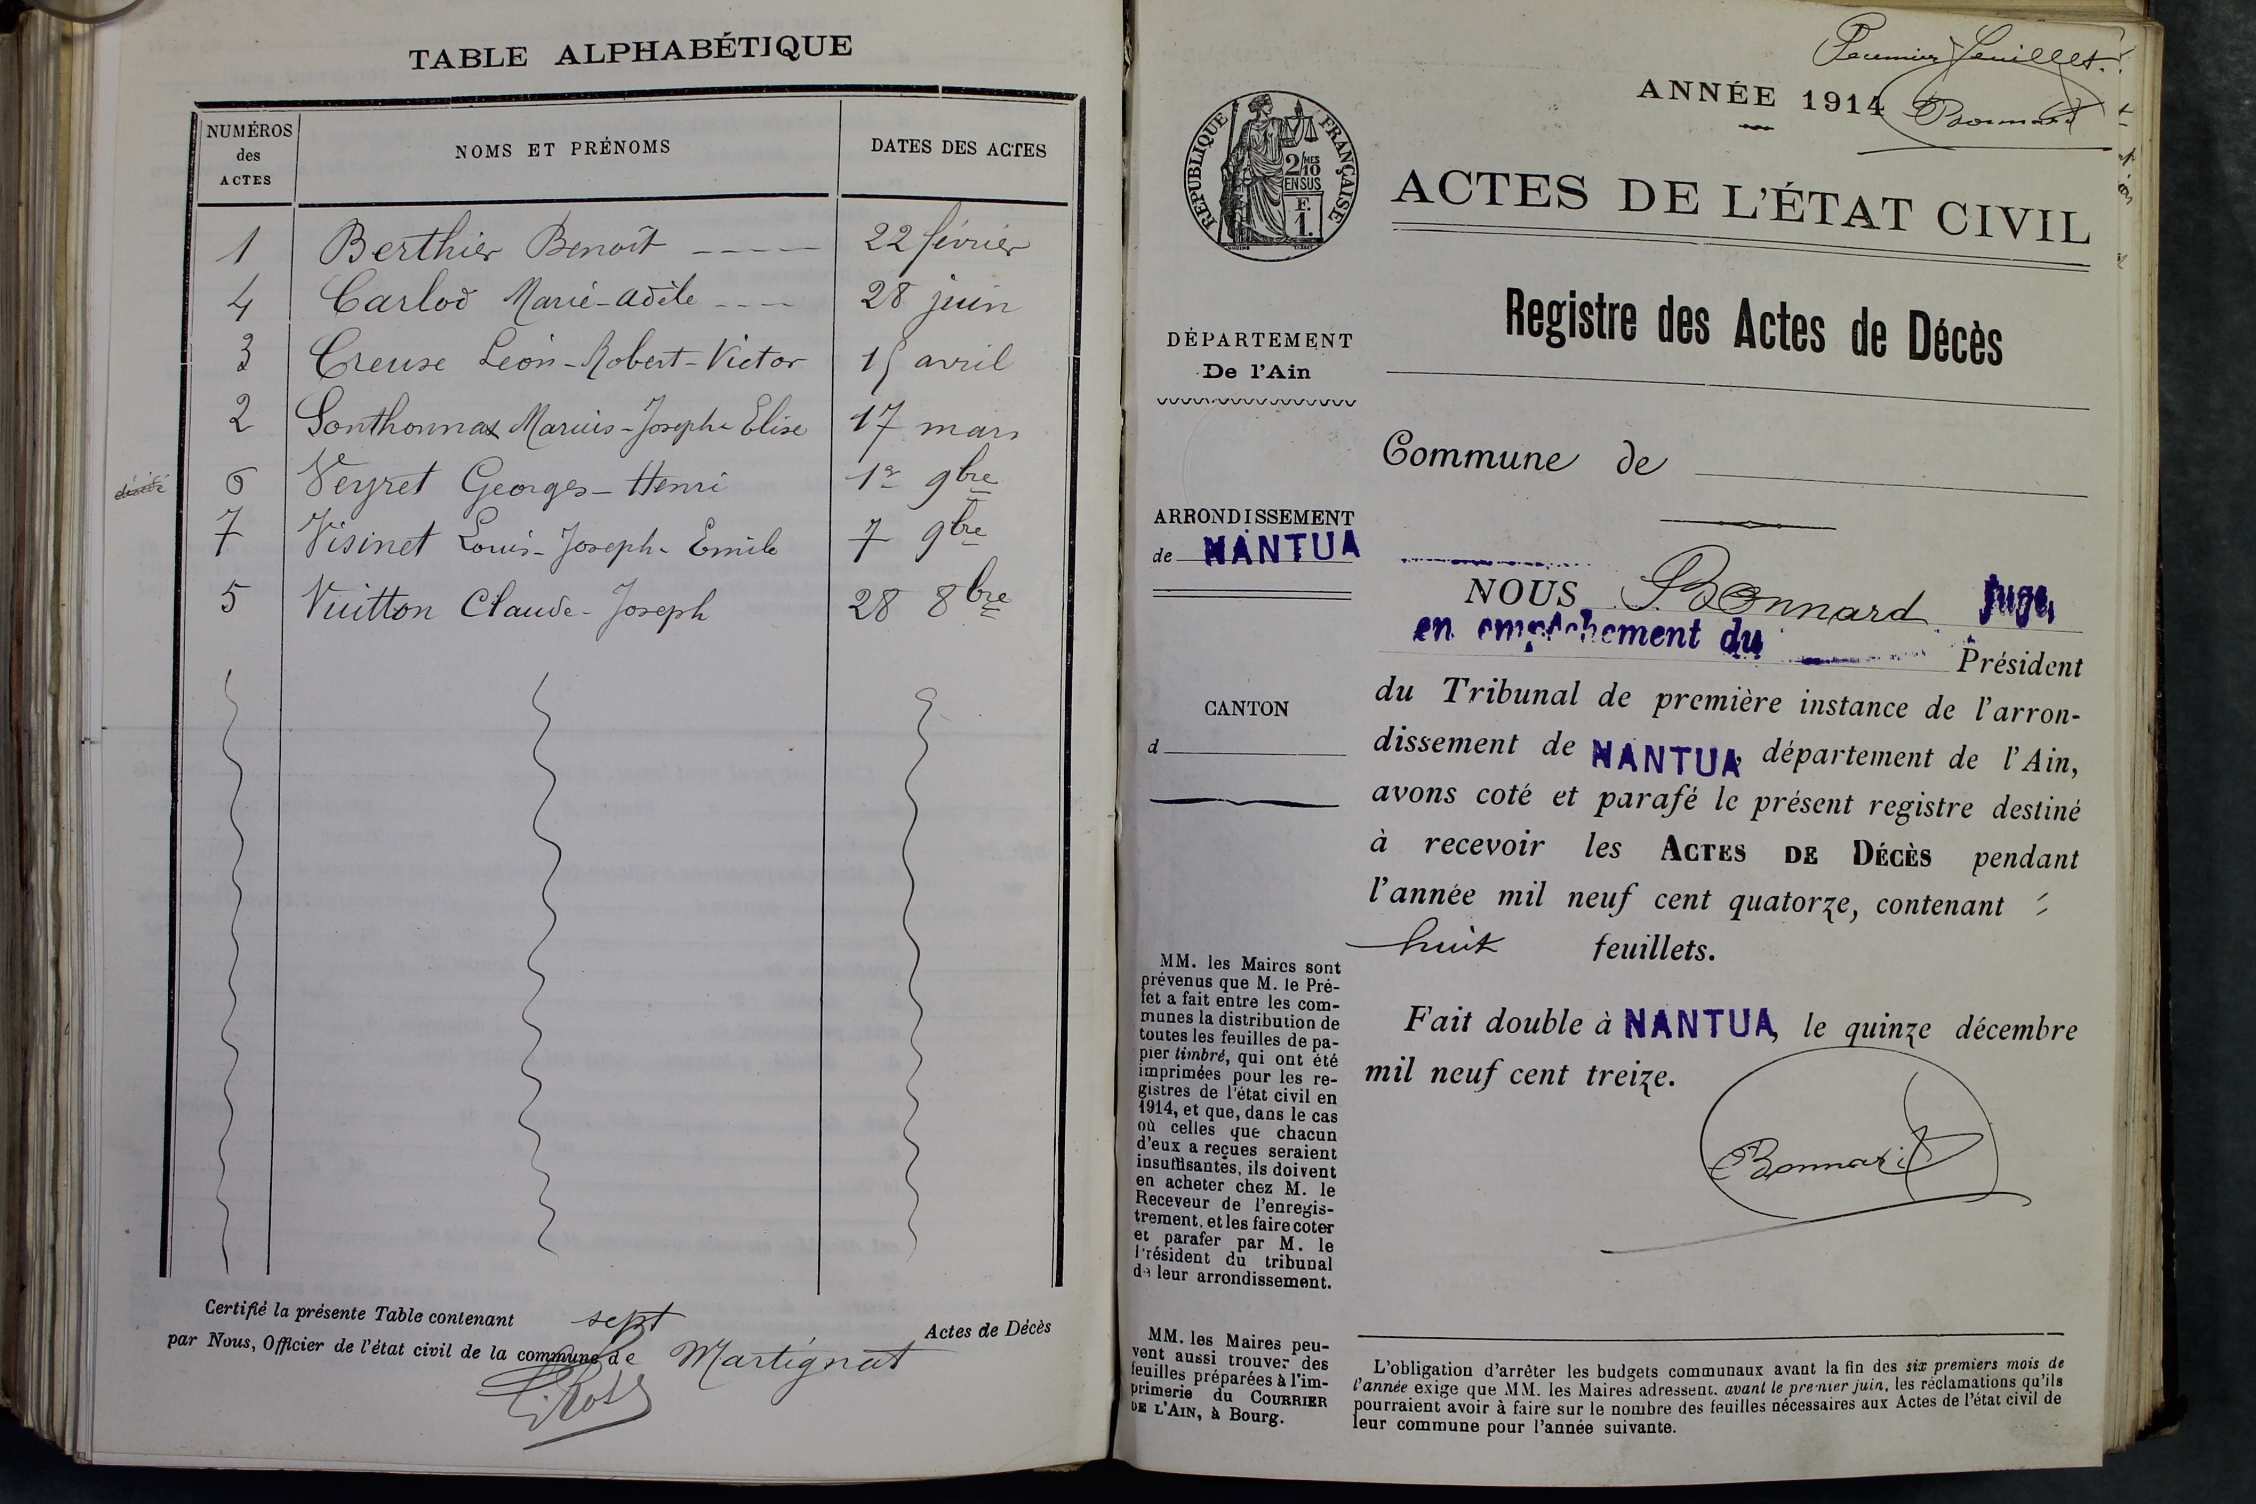 TABLE ALPHABÉTIQUE
NUMÉROS
des
ACTES
NOMS ET PRÉNOMS
DATES DES ACTES
1 Berthier Benoît ---- 22 février
4 Carlod Marie-Adèle ---- 28 juin
3 Creuse Léon-Robert-Victor 15 avril
2 Sonthonnax Marius-Joseph-Elise 17 mars
6 Veyret Georges-Henri 1er 9bre
7 Visinet Louis-Joseph-Emile 7 9bre
5 Vuitton Claude-Joseph 28 8bre
Certifié la présente Table contenant sept Actes de Décès
par Nous, Officier de l'état civil de la commune de Martignat
Premier feuillet.
Bonnard
ANNÉE 1914
RÉPUBLIQUE FRANÇAISE
2/10MES
EN SUS
F.
1.
ACTES DE L'ÉTAT CIVIL
Registre des Actes de Décès
DÉPARTEMENT
De l'Ain
Commune de
ARRONDISSEMENT
de NANTUA
CANTON
d
NOUS Bonnard Juge,
en empêchement du Président
du Tribunal de première instance de l'arron-
dissement de NANTUA, département de l'Ain,
avons coté et parafé le présent registre destiné
à recevoir les ACTES DE DÉCÈS pendant
l'année mil neuf cent quatorze, contenant
huit feuillets.
Fait double à NANTUA, le quinze décembre
mil neuf cent treize.
Bonnard
MM. les Maires sont
prévenus que M. le Pré-
fet a fait entre les com-
munes la distribution de
toutes les feuilles de pa-
pier timbré, qui ont été
imprimées pour les re-
gistres de l'état civil en
1914, et que, dans le cas
où celles que chacun
d'eux a reçues seraient
insuffisantes, ils doivent
en acheter chez M. le
Receveur de l'enregis-
trement, et les faire coter
et parafer par M. le
Président du tribunal
de leur arrondissement.
MM. les Maires peu-
vent aussi trouver des
feuilles préparées à l'im-
primerie du COURRIER
DE L'AIN, à Bourg.
L'obligation d'arrêter les budgets communaux avant la fin des six premiers mois de
l'année exige que MM. les Maires adressent, avant le premier juin, les réclamations qu'ils
pourraient avoir à faire sur le nombre des feuilles nécessaires aux Actes de l'état civil de
leur commune pour l'année suivante.